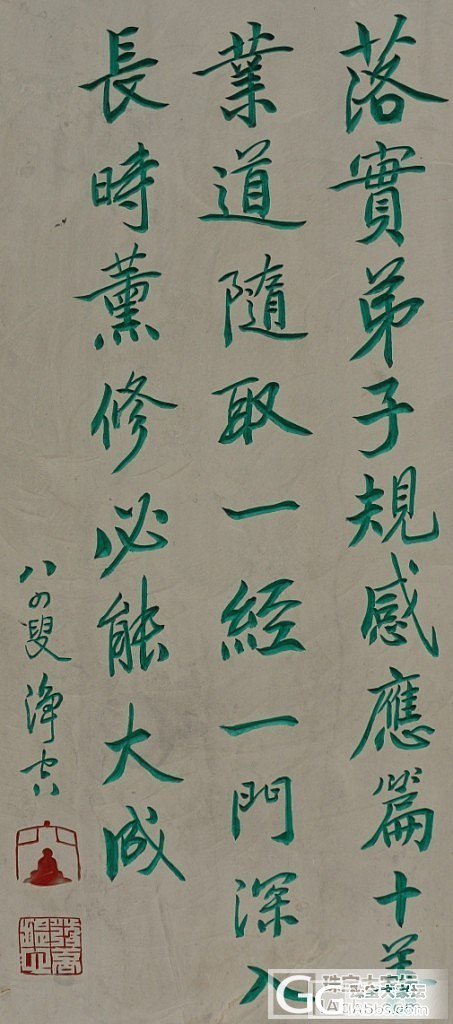 落實弟子規感應篇十善
業道隨取一經一門深入
長時薰修必能大成
八四叟 淨空
珠宝大家坛